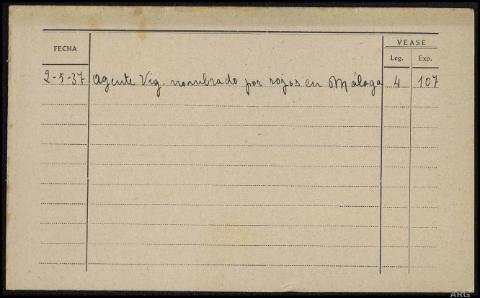 FECHA
VEASE
Leg. Exp.
2-5-37 Agente Vig. nombrado por rojos en Málaga 4 107
ARG